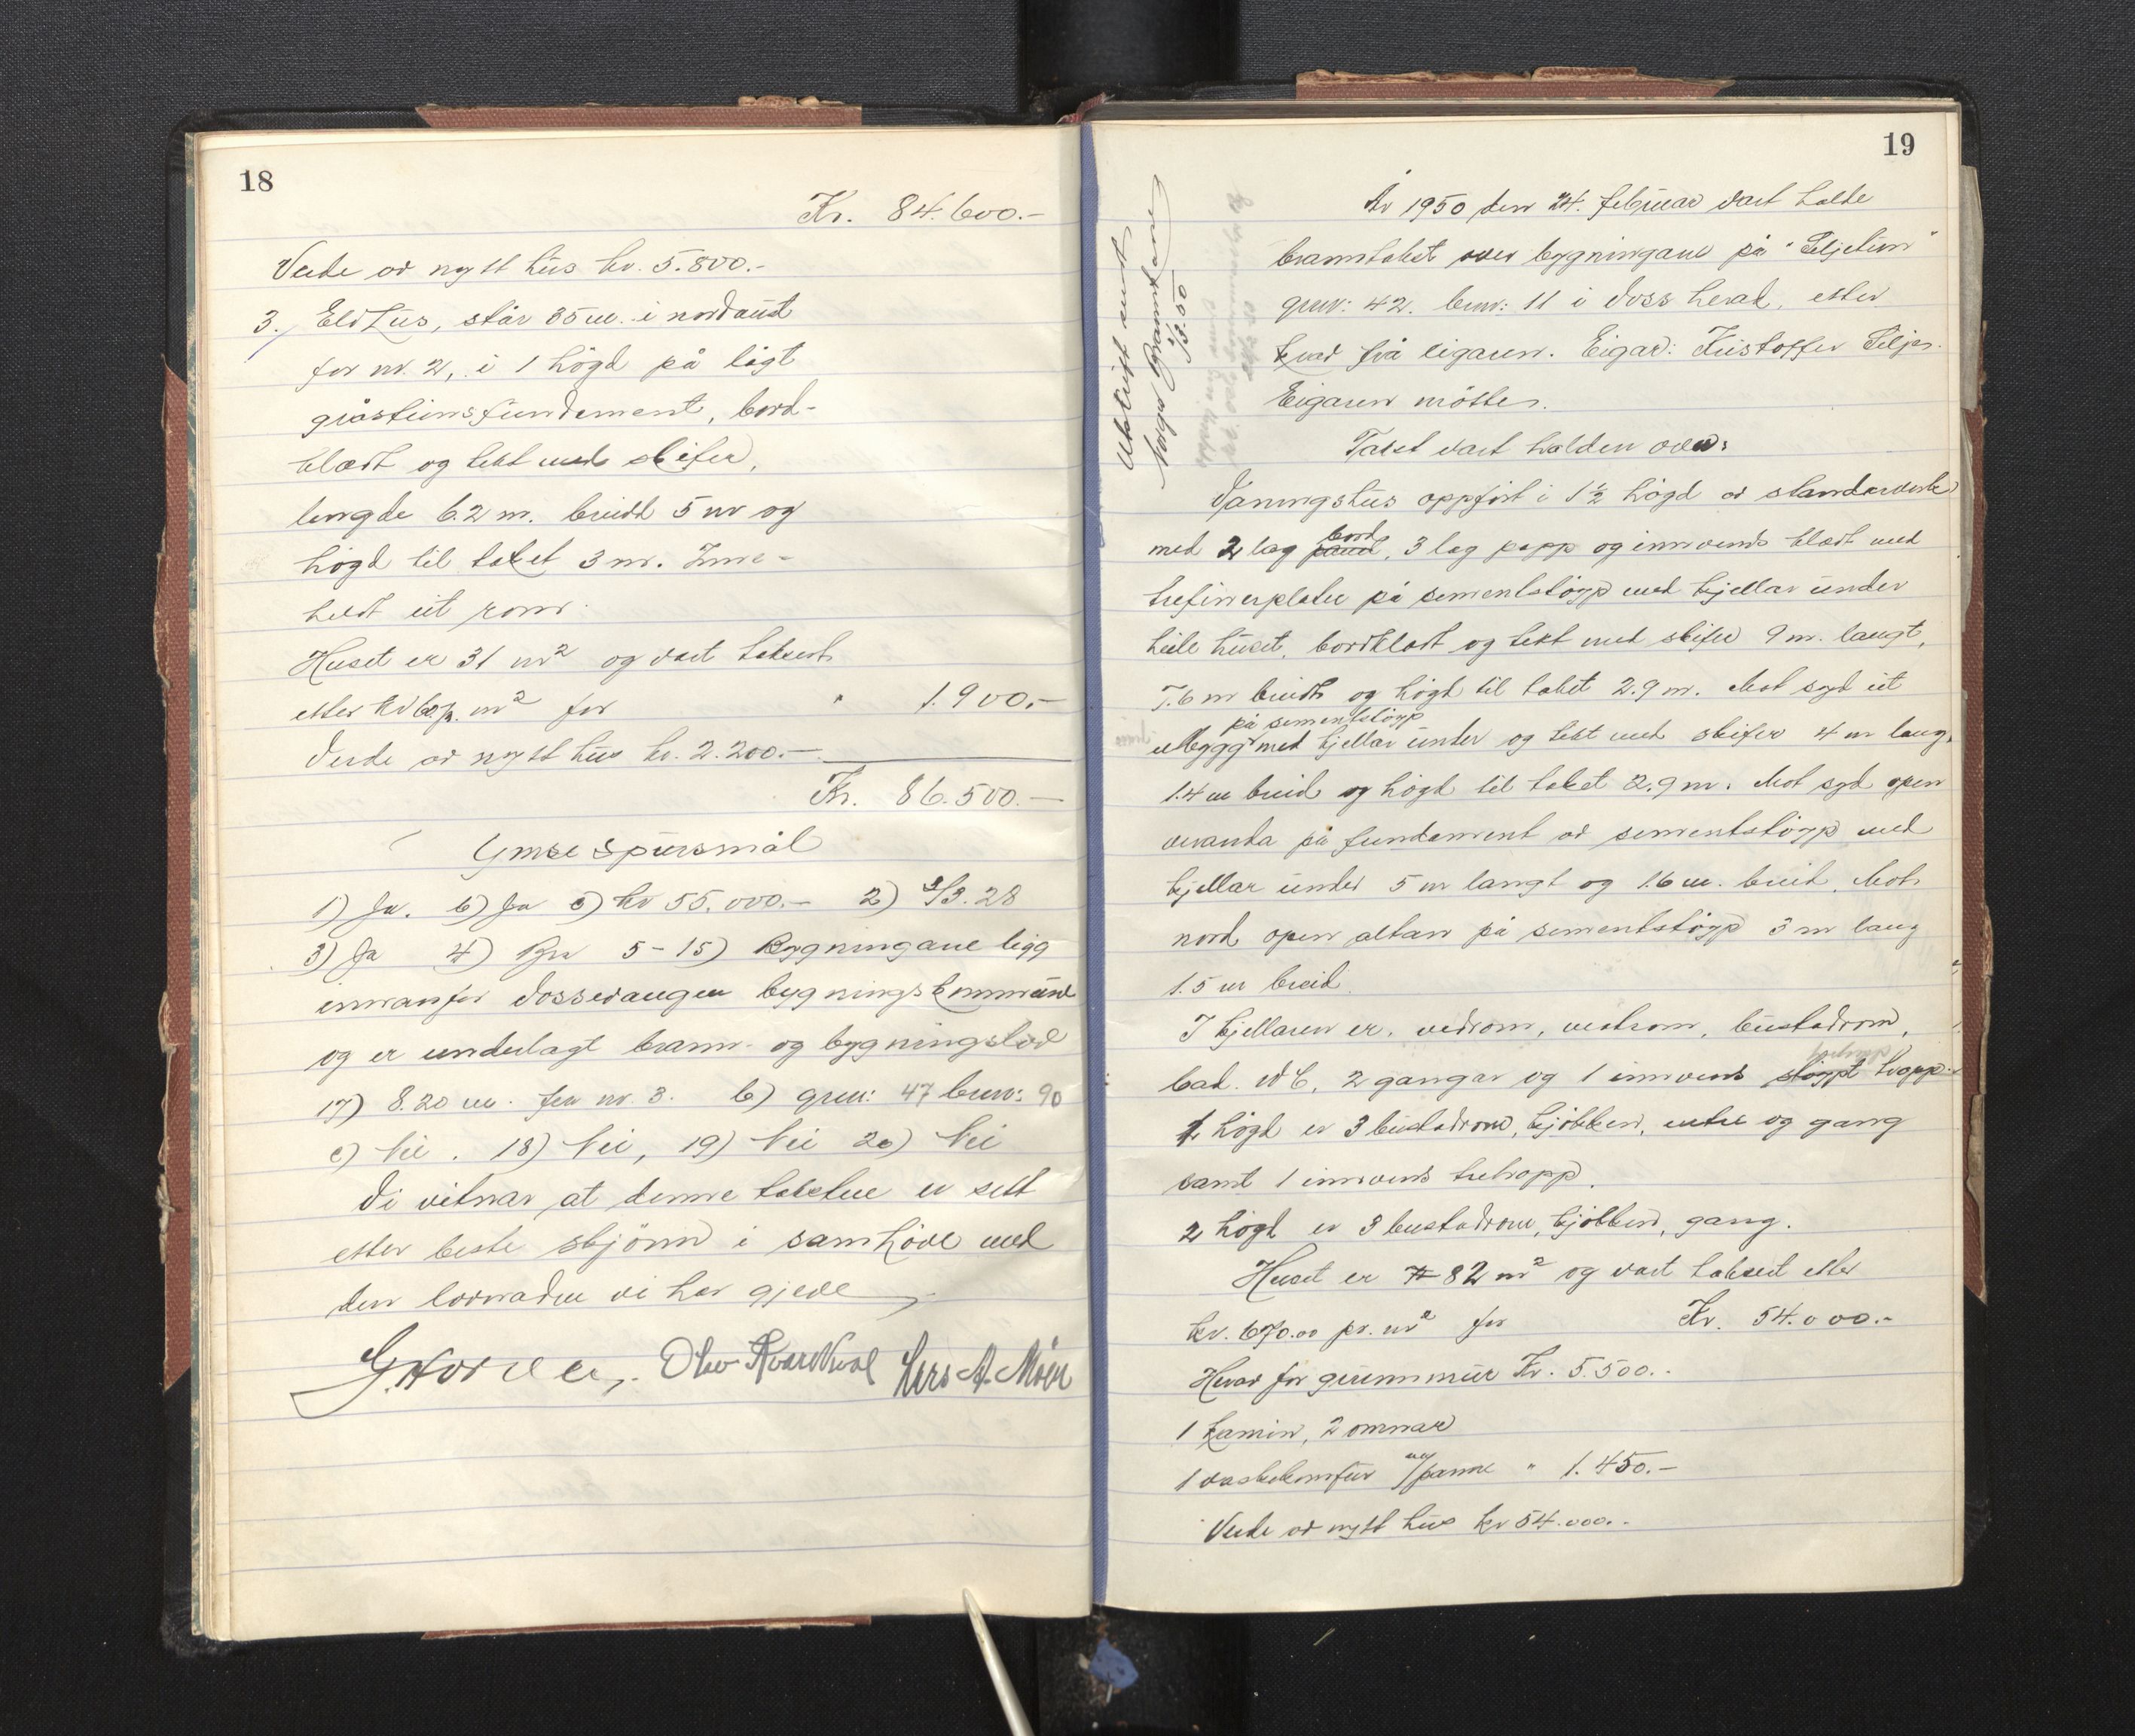 18
Kr. 84.600.-
Verde av nytt hus kr. 5.800.-
3. Eldhus, står 35 m. i nordaust
for nr. 2, i 1 högd på lågt
gråsteinsfundament, bord-
klædt og tekt med skifer,
lengde 6.2 m. breidd 5 m og
högd til taket 3 m. Inne-
heldt eit rom.
Huset er 31 m² og vart taksert
etter kr 60 pr. m² for " 1.900.-
Verde av nytt hus kr. 2.200.-
Kr. 86.500.-
Ymse spursmål
1) Ja. b) Ja c) kr 55.000.- 2) 3/3.28
3) Ja 4) Bra 5-15) Bygningane ligg
innanfor Vossevangen bygningskommune
og er underlagt brann- og bygningslov
17) 8.20 m. frå nr. 3. b) gnr: 47 bnr: 90
c) Nei. 18) Nei, 19) Nei 20) Nei
Vi vitnar at denne taksten er sett
etter beste skjönn i samhöve med
den lovnaden vi har gjeve
Olav Kvarekval Lars A. Möen
19
Utskrift sendt
Norges Branntrane
1/3.50
År 1950 den 24. februar vart halde
branntakst over bygningane på "Seljetun"
gnr: 42. bnr: 11 i Voss herad, etter
krav frå eigaren. Eigar: Kristoffer Seljes.
Eigaren mötte.
Takst vart halden over:
Våningshus oppfört i 1½ högd av standarverk
med 2 lag bord, 3 lag papp og innvends klædt med
trefinerplater på sementstöyp med kjellar under
heile huset, bordklædt og tekt med skifer 9 m. langt,
7.6 m breidt og högd til taket 2.9 m. Mot syd eit
på sementstöyp
utbygg med kjellar under og tekt med skifer 4 m lang,
1.4 m breid og högd til taket 2.9 m. Mot syd open
veranda på fundament av sementstöyp med
kjellar under 5 m langt og 1.6 m. breid. Mot
nord open altan på sementstöyp 3 m lang
1.5 m breid.
I kjellaren er, vedrom, matrom, bustadrom,
bad. WC, 2 gangar og 1 innvends stöypt tropp.
1 högd er 3 bustadrom, kjökken, entre og gang
samt 1 innvends tretropp.
2 högd er 3 bustadrom, kjökken, gang.
Huset er 82 m² og vart taksert etter
kr. 670.00 pr. m² for Kr. 54.000.-
Herav for grunnmur Kr. 5.500.-
1 kamin, 2 omnar
1 vaskekomfur m/panne " 1.450.-
Verde av nytt hus kr 54.000.-